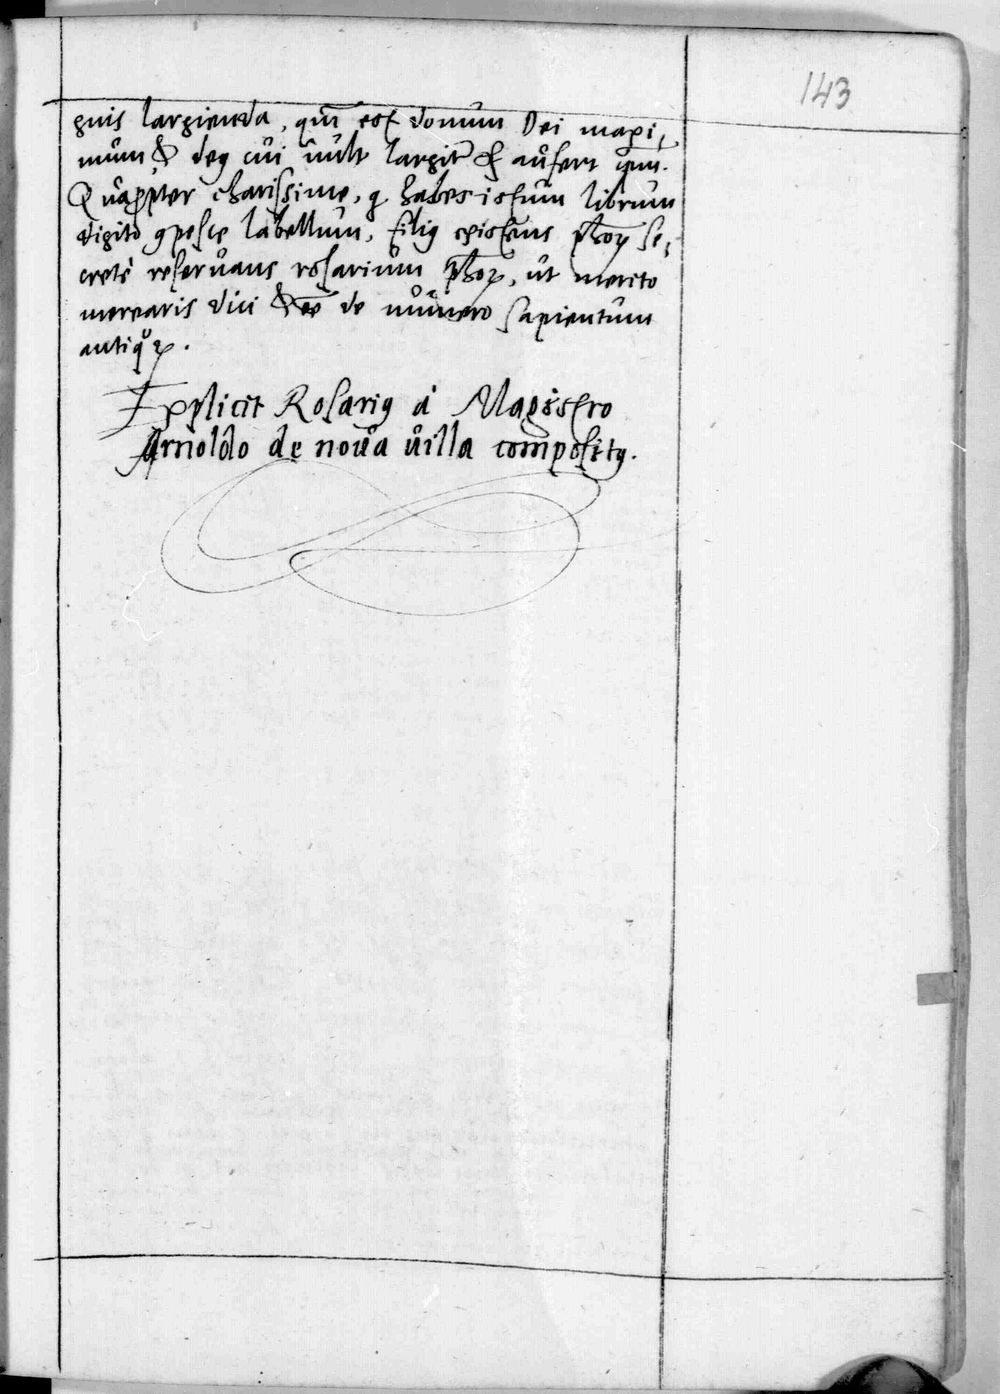 143
gnis largienda, qm̄ est donum Dei maxi-
mum & deꝰ cui vult largitr̄ & aufert
Quaꝓpter charissime, q habes istum librum
digito ꝯpesce labellum, filiꝰ existens ph̄oꝝ se-
cretè reservans rosarium ph̄oꝝ, ut merito
merearis dici & eē de numero sapientum
antiquoꝝ.
Explicit Rosariꝰ à Magistro
Arnoldo de nova villa compositꝰ.